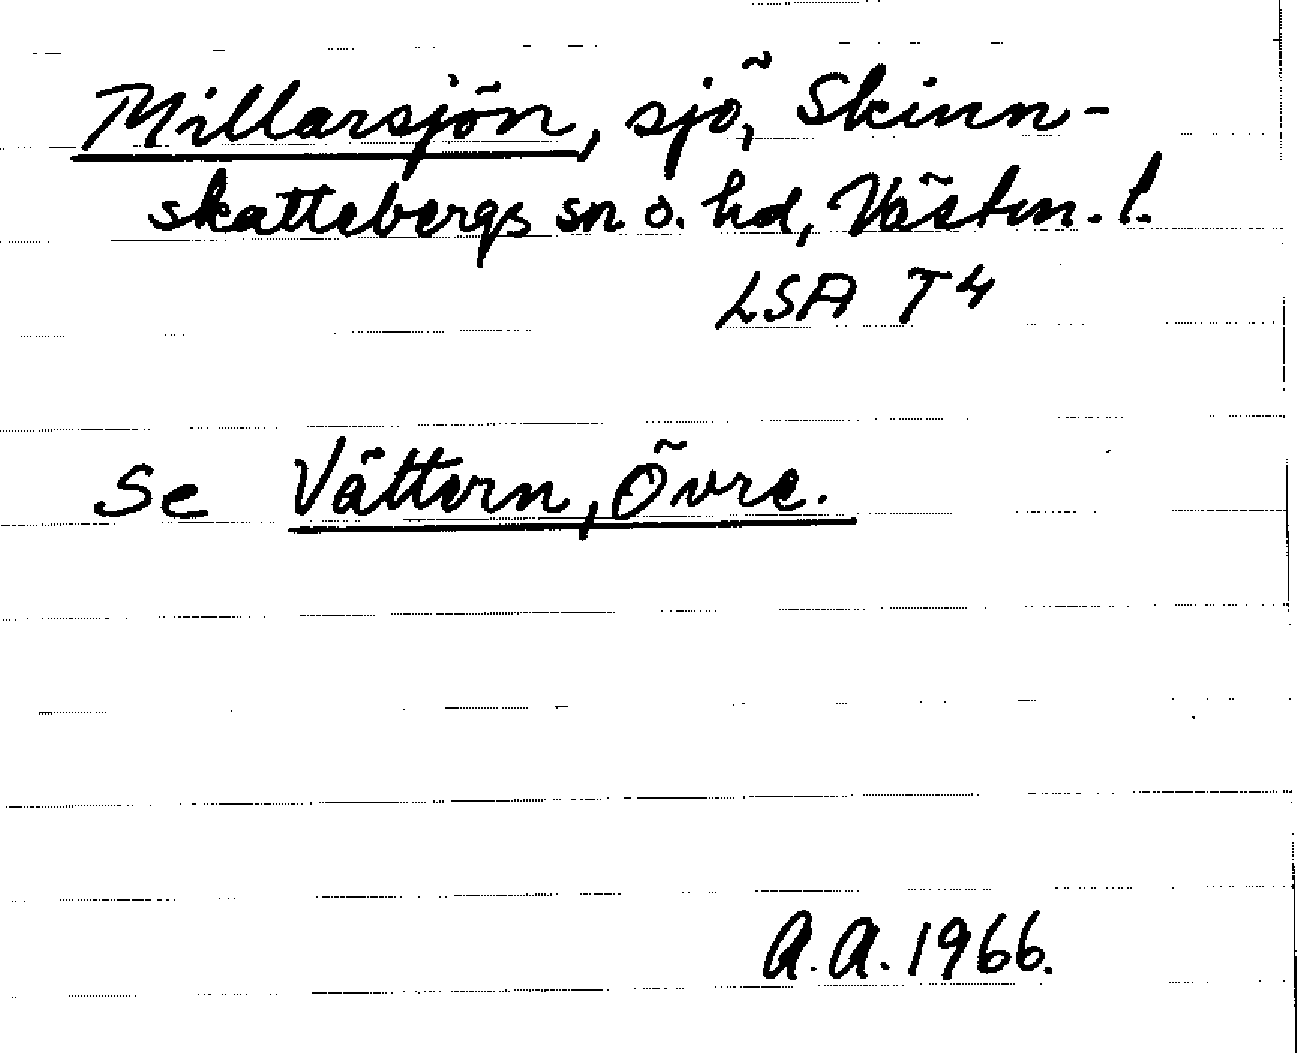 Millarsjön, sjö, Skinn-
skattebergs sn o. hd, Västm. l.
LSA T4
Se Vättern, Övre.
A.A. 1966.